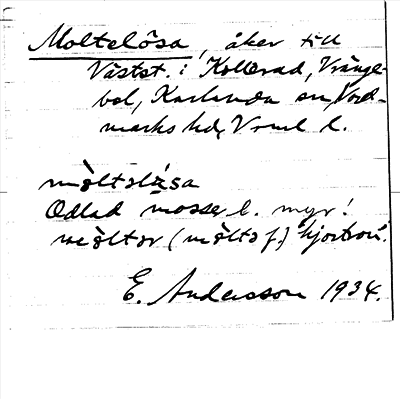 Moltelösa, åker till
Västst. i Kollerad, Vränge-
bol, Karlanda sn, Nord-
marks hd, Vrml l.
mòltolø̀sa
Odlad mosse l. myr!
mòltor (mòlta f.) hjortron.
E. Andersson 1934.